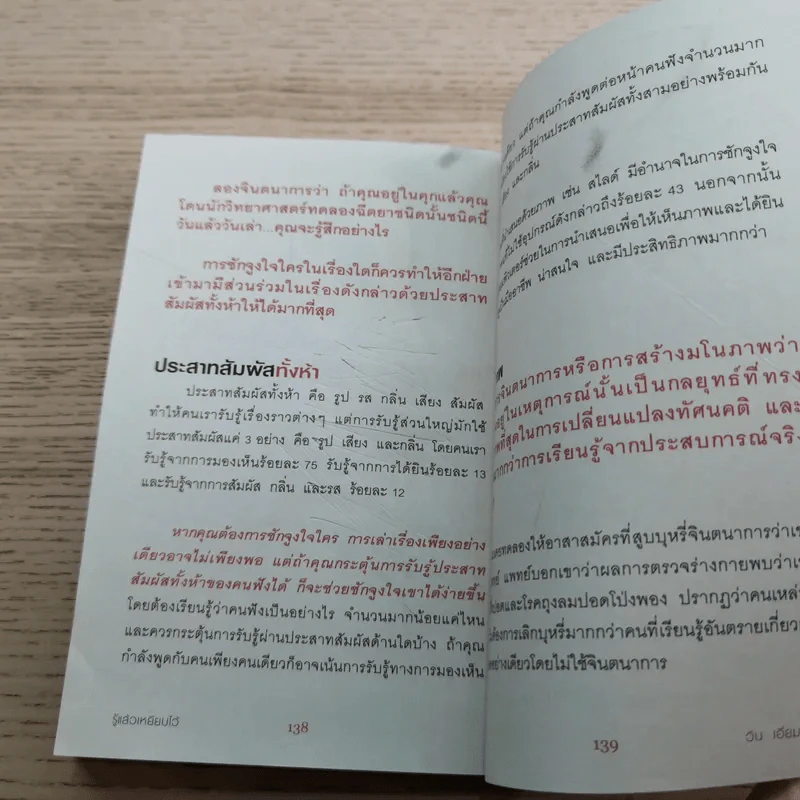 ลองจินตนาการว่า ถ้าคุณอยู่ในคุกแล้วคุณ
โดนนักวิทยาศาสตร์ทดลองฉีดยาชนิดนั้นชนิดนี้
วันแล้ววันเล่า...คุณจะรู้สึกอย่างไร
การชักจูงใจใครในเรื่องใดก็ควรทำให้อีกฝ่าย
เข้ามามีส่วนร่วมในเรื่องดังกล่าวด้วยประสาท
สัมผัสทั้งห้าให้ได้มากที่สุด
ประสาทสัมผัสทั้งห้า
ประสาทสัมผัสทั้งห้า คือ รูป รส กลิ่น เสียง สัมผัส
ทำให้คนเรารับรู้เรื่องราวต่างๆ แต่การรับรู้ส่วนใหญ่มักใช้
ประสาทสัมผัสแค่ 3 อย่าง คือ รูป เสียง และกลิ่น โดยคนเรา
รับรู้จากการมองเห็นร้อยละ 75 รับรู้จากการได้ยินร้อยละ 13
และรับรู้จากการสัมผัส กลิ่น และรส ร้อยละ 12
หากคุณต้องการชักจูงใจใคร การเล่าเรื่องเพียงอย่าง
เดียวอาจไม่เพียงพอ แต่ถ้าคุณกระตุ้นการรับรู้ประสาท
สัมผัสทั้งห้าของคนฟังได้ ก็จะช่วยชักจูงใจเขาได้ง่ายขึ้น
โดยต้องเรียนรู้ว่าคนฟังเป็นอย่างไร จำนวนมากน้อยแค่ไหน
และควรกระตุ้นการรับรู้ผ่านประสาทสัมผัสด้านใดบ้าง ถ้าคุณ
กำลังพูดกับคนเพียงคนเดียวก็อาจเน้นการรับรู้ทางการมองเห็น
รู้แล้วเหยียบไว้
138
แต่ถ้าคุณกำลังพูดต่อหน้าคนฟังจำนวนมาก
การรับรู้ผ่านประสาทสัมผัสทั้งสามอย่างพร้อมกัน
และกลิ่น
นำเสนอด้วยภาพ เช่น สไลด์ มีอำนาจในการชักจูงใจ
ใช้อุปกรณ์ดังกล่าวถึงร้อยละ 43 นอกจากนั้น
ช่วยในการนำเสนอเพื่อให้เห็นภาพและได้ยิน
มืออาชีพ น่าสนใจ และมีประสิทธิภาพมากกว่า
จินตนาการหรือการสร้างมโนภาพว่า
อยู่ในเหตุการณ์นั้นเป็นกลยุทธ์ที่ทรง
ที่สุดในการเปลี่ยนแปลงทัศนคติ และ
มากกว่าการเรียนรู้จากประสบการณ์จริง
ทดลองให้อาสาสมัครที่สูบบุหรี่จินตนาการว่าเ
แพทย์บอกเขาว่าผลการตรวจร่างกายพบว่าเ
และโรคถุงลมปอดโป่งพอง ปรากฏว่าคนเหล่า
ต้องการเลิกบุหรี่มากกว่าคนที่เรียนรู้อันตรายเกี่ยว
อย่างเดียวโดยไม่ใช้จินตนาการ
139
วิน เอี่ยม